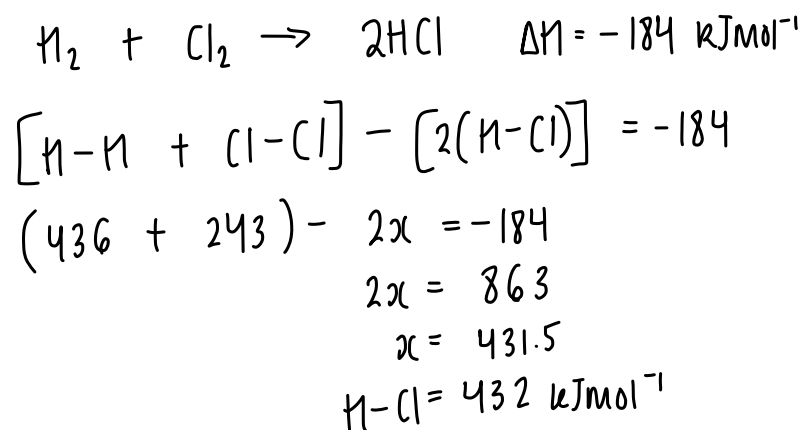 H₂ + Cl₂ → 2HCl ΔH = -184 kJmol⁻¹
[H-H + Cl-Cl] - [2(H-Cl)] = -184
(436 + 243) - 2x = -184
2x = 863
x = 431.5
H-Cl = 432 kJmol⁻¹